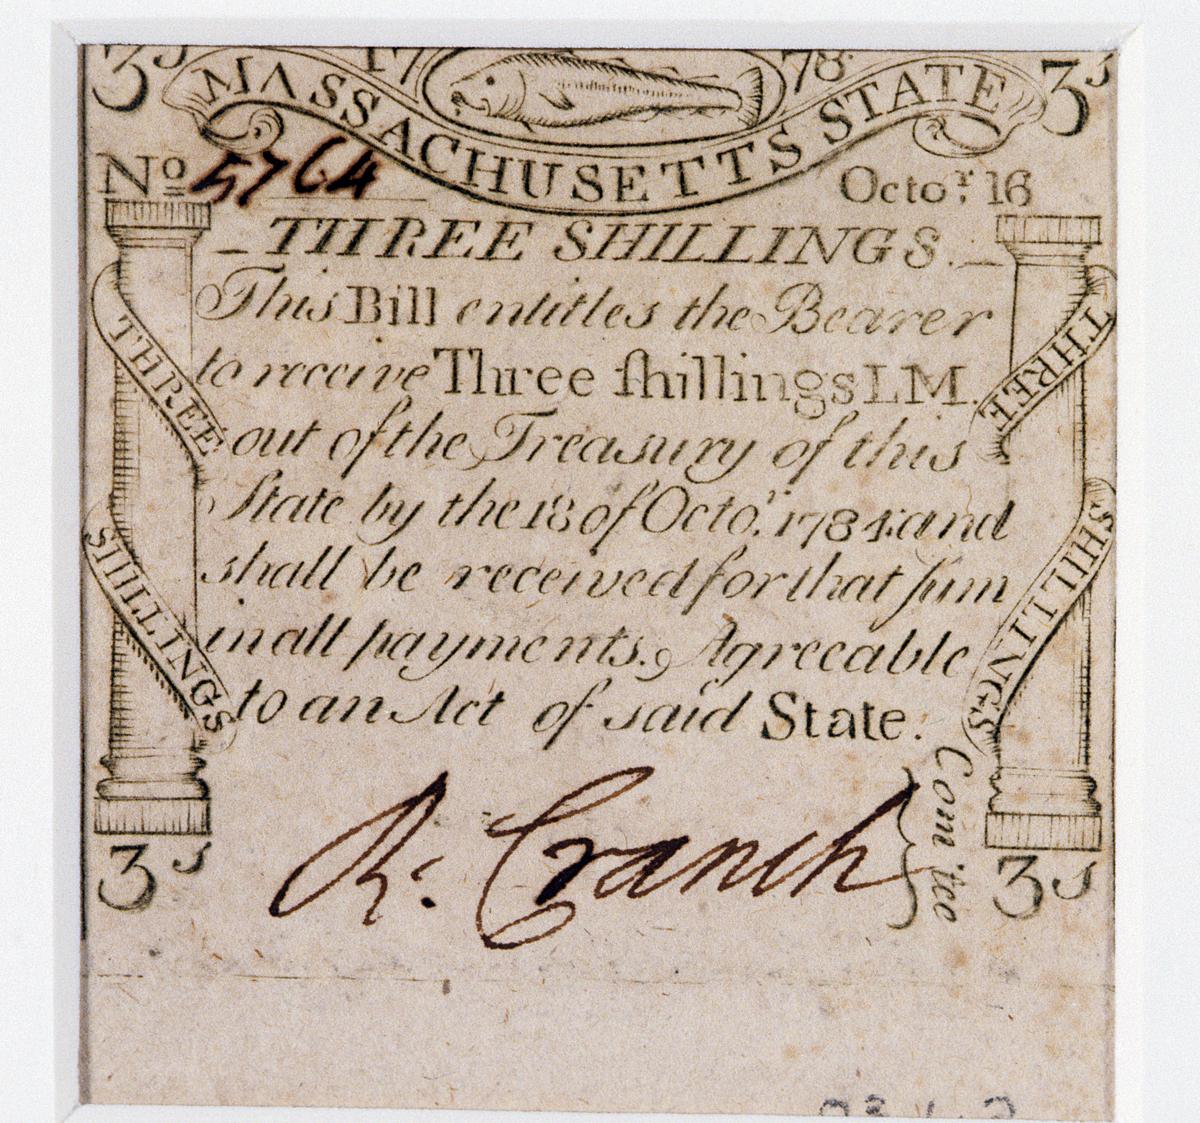 3s 17 78 3s
MASSACHUSETTS STATE
No 5764 Octor. 16
THREE SHILLINGS.
This Bill entitles the Bearer
to receive Three ſhillings LM.
out of the Treasury of this
State by the 18 of Octor. 1784; and
shall be received for that ſum
in all payments, Agreeable
to an Act of said State.
THREE
SHILLINGS
THREE
SHILLINGS
R. Cranch
Comtee
3s 3s